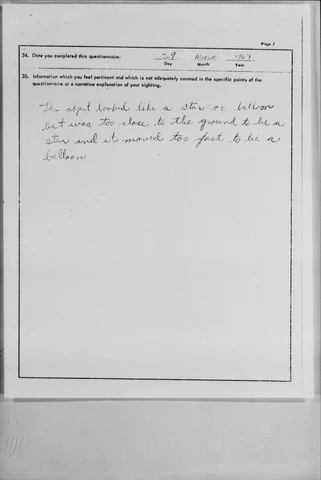 Page 7
34. Date you completed this questionnaire: 29 March 1967
Day Month Year
35. Information which you feel pertinent and which is not adequately covered in the specific points of the
questionnaire or a narrative explanation of your sighting.
The object looked like a star or balloon
but was too close to the ground to be a
star and it moved too fast to be a
balloon